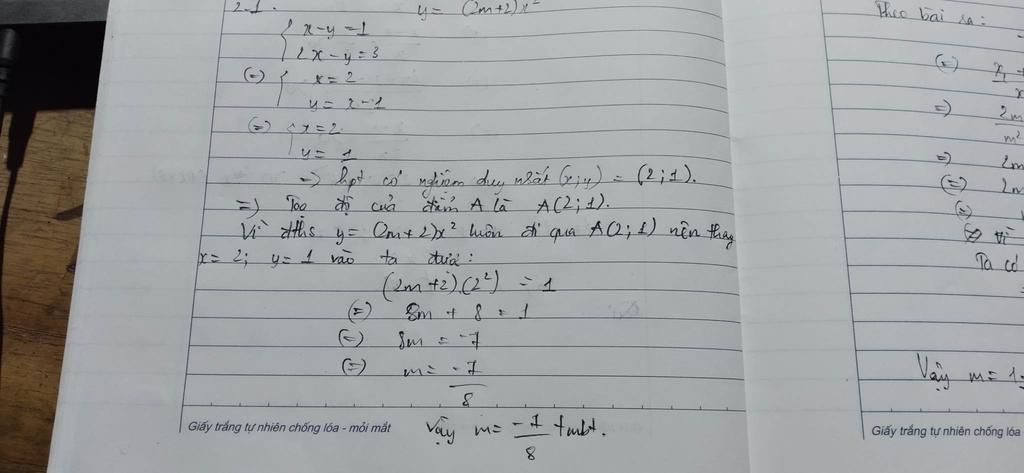 2.1. y = (2m+2)x²
{ x-y = 1
{ 2x-y = 3
(=) { x = 2
y = x-1
(=) { x = 2
y = 1
=> hpt có nghiệm duy nhất (x;y) = (2;1).
=) Toạ độ của điểm A là A(2;1).
Vì đths y = (2m+2)x² luôn đi qua A(2;1) nên thay
x = 2; y = 1 vào ta được:
(2m+2).(2²) = 1
(=) 8m + 8 = 1
(=) 8m = -7
(=) m = -7/8
Vậy m = -7/8 tmbt.
Giấy trắng tự nhiên chống lóa - mỏi mắt
Theo bài ra:
(=)
=) 2m
m²
=) 2m
(=) 2m
(=)
vì
Ta có
Vậy m = 1
Giấy trắng tự nhiên chống lóa